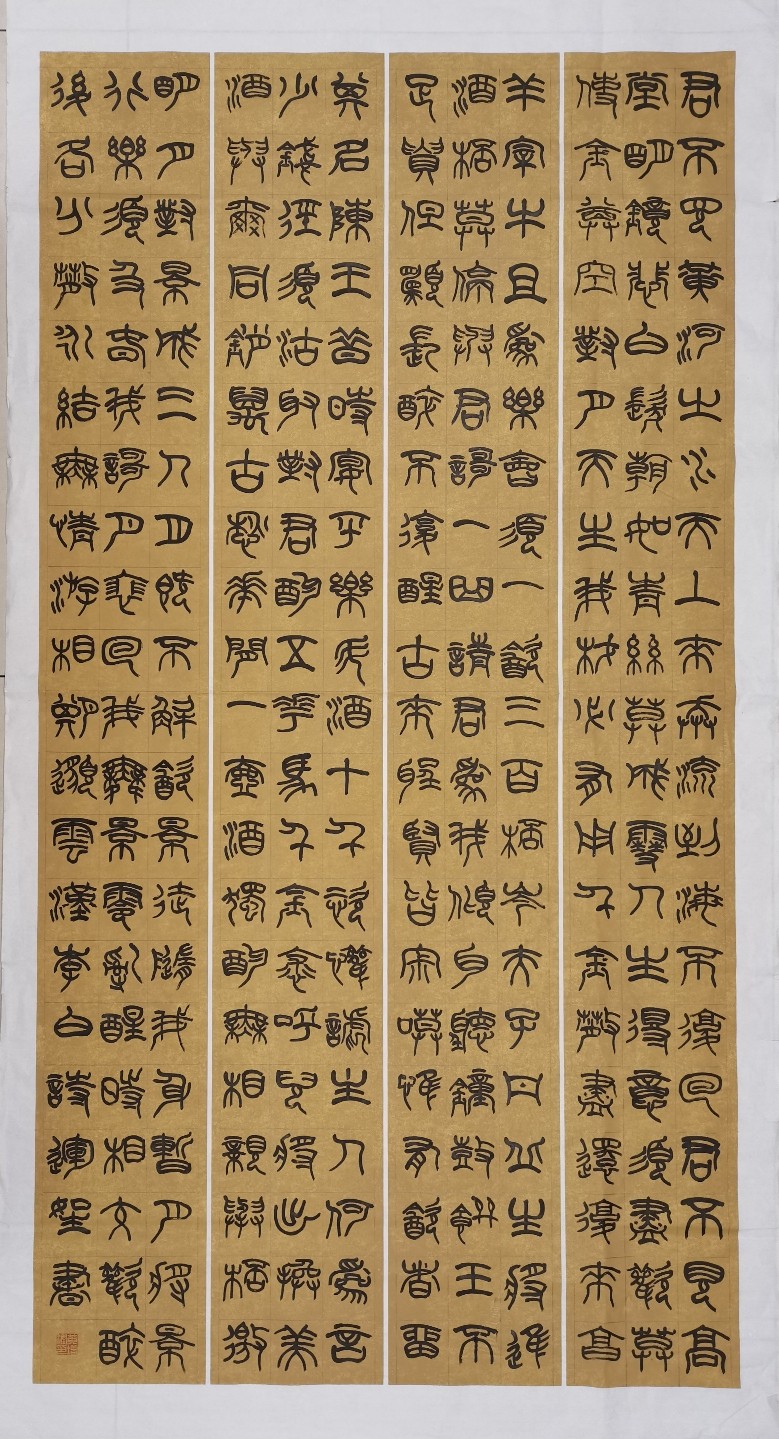 君不見黃河之水天上來奔流到海不復回君不見高
堂明鏡悲白髮朝如青絲莫成雪人生得意須盡歡莫
使金尊空對月天生我材必有用千金散盡還復來亯
羊宰牛且為樂會須一飲三百杯岑夫子丹丘生將進
酒杯莫停與君謌一曲請君為我傾耳聽鐘鼓饌玉不
足貴但願長醉不復醒古來聖賢皆寂嘆惟有飲者留
其名陳王昔時宴平樂斗酒十千恣讙謔主人何為言
少錢徑須沽取對君酌五花馬千金裘呼兒將出換美
酒與爾同銷萬古愁花間一壺酒獨酌無相親舉杯邀
明月對景成三人月既不解飲景徒隨我身暫月將景
行樂須及春我謌月裴回我舞景零亂醒時相交歡醉
後各分散永結無情游相期邈雲漢李白詩運書